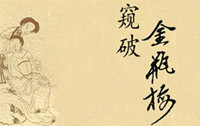 窥破
金瓶梅